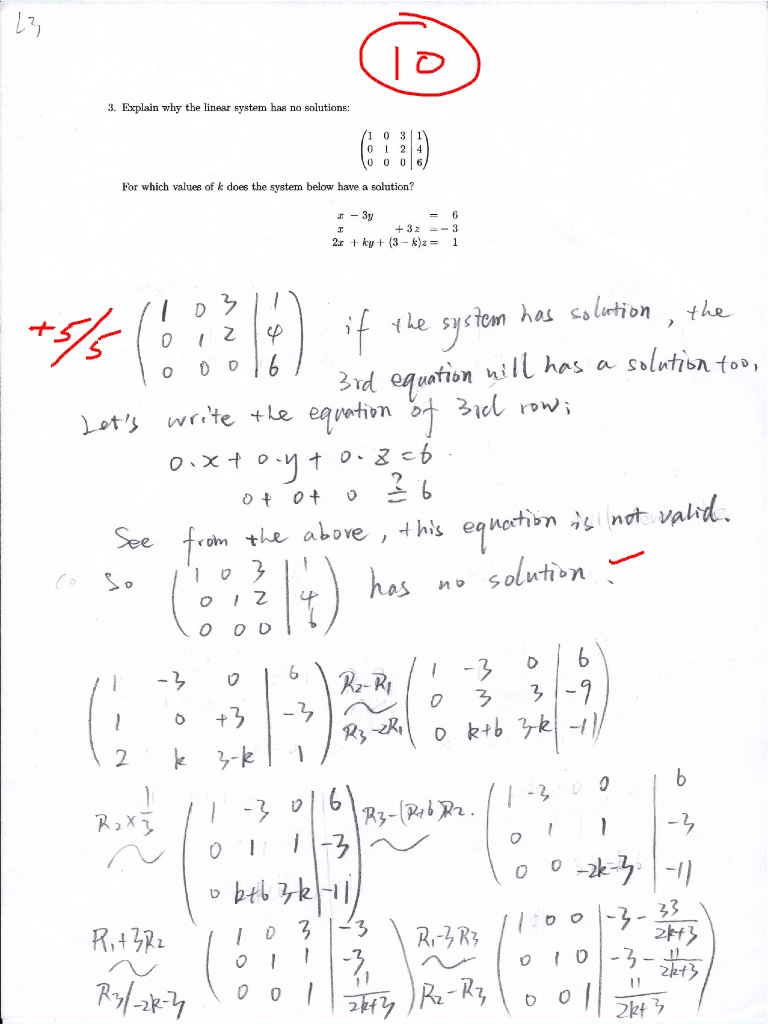 L3
10
3. Explain why the linear system has no solutions:
( 1 0 3 | 1 )
( 0 1 2 | 4 )
( 0 0 0 | 6 )
For which values of k does the system below have a solution?
x − 3y = 6
x + 3z = − 3
2x + ky + (3 − k)z = 1
+5/5
( 1 0 3 | 1 )
( 0 1 2 | 4 )
( 0 0 0 | 6 )
if the system has solution, the
3rd equation will has a solution too,
Let's write the equation of 3rd row:
0.x + 0.y + 0.z = 6.
0 + 0 + 0 ?= 6
See from the above, this equation is not valid.
So ( 1 0 3 | 1 ) has no solution.
( 0 1 2 | 4 )
( 0 0 0 | 6 )
( 1 -3 0 | 6 ) R2-R1 ( 1 -3 0 | 6 )
( 1 0 +3 | -3 ) ~ ( 0 3 3 | -9 )
( 2 k 3-k | 1 ) R3-2R1 ( 0 k+6 3-k | -11 )
R2×1/3 ~ ( 1 -3 0 | 6 ) R3-(k+6)R2. ~ ( 1 -3 0 | 6
( 0 1 1 | -3 ) ( 0 1 1 | -3
( 0 k+6 3-k | -11 ) ( 0 0 -2k-3 | -11
R1+3R2 ( 1 0 3 | -3 ) R1-3R3 ( 1 0 0 | -3 - 33/2k+3 )
~ ( 0 1 1 | -3 ) ~ ( 0 1 0 | -3 - 11/2k+3 )
R3/-2k-3 ( 0 0 1 | 11/2k+3 ) R2-R3 ( 0 0 1 | 11/2k+3 )